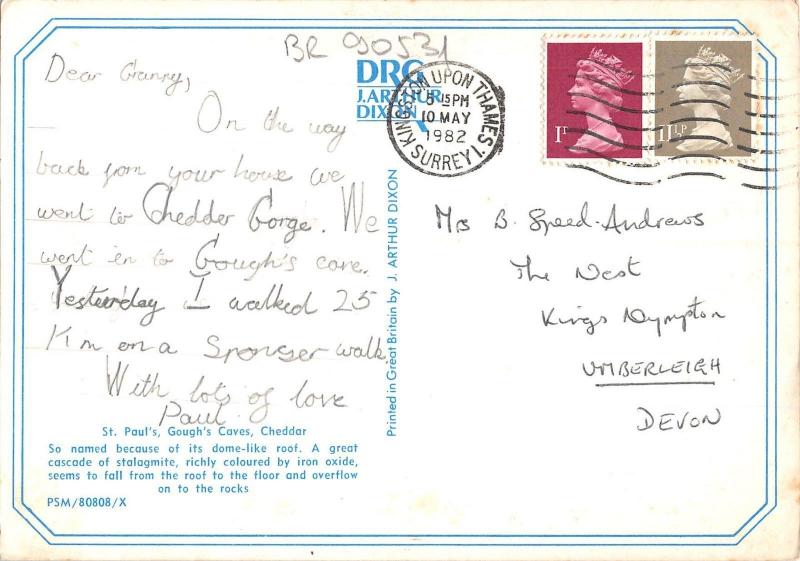 BR 90531
Dear Granny,
On the way
back from your house we
went to Chedder Gorge. We
went in to Gough's cave.
Yesturday I walked 25
Km on a Sponser walk.
With lots of love
Paul.
St. Paul's, Gough's Caves, Cheddar
So named because of its dome-like roof. A great
cascade of stalagmite, richly coloured by iron oxide,
seems to fall from the roof to the floor and overflow
on to the rocks
PSM/80808/X
DRG
J. ARTHUR
DIXON
Printed in Great Britain by J. ARTHUR DIXON
KINGSTON UPON THAMES
5 15 PM
10 MAY
1982
SURREY 1.
1P
11½P
Mrs B. Speed-Andrews
The Nest
Kings Nympton
UMBERLEIGH
DEVON